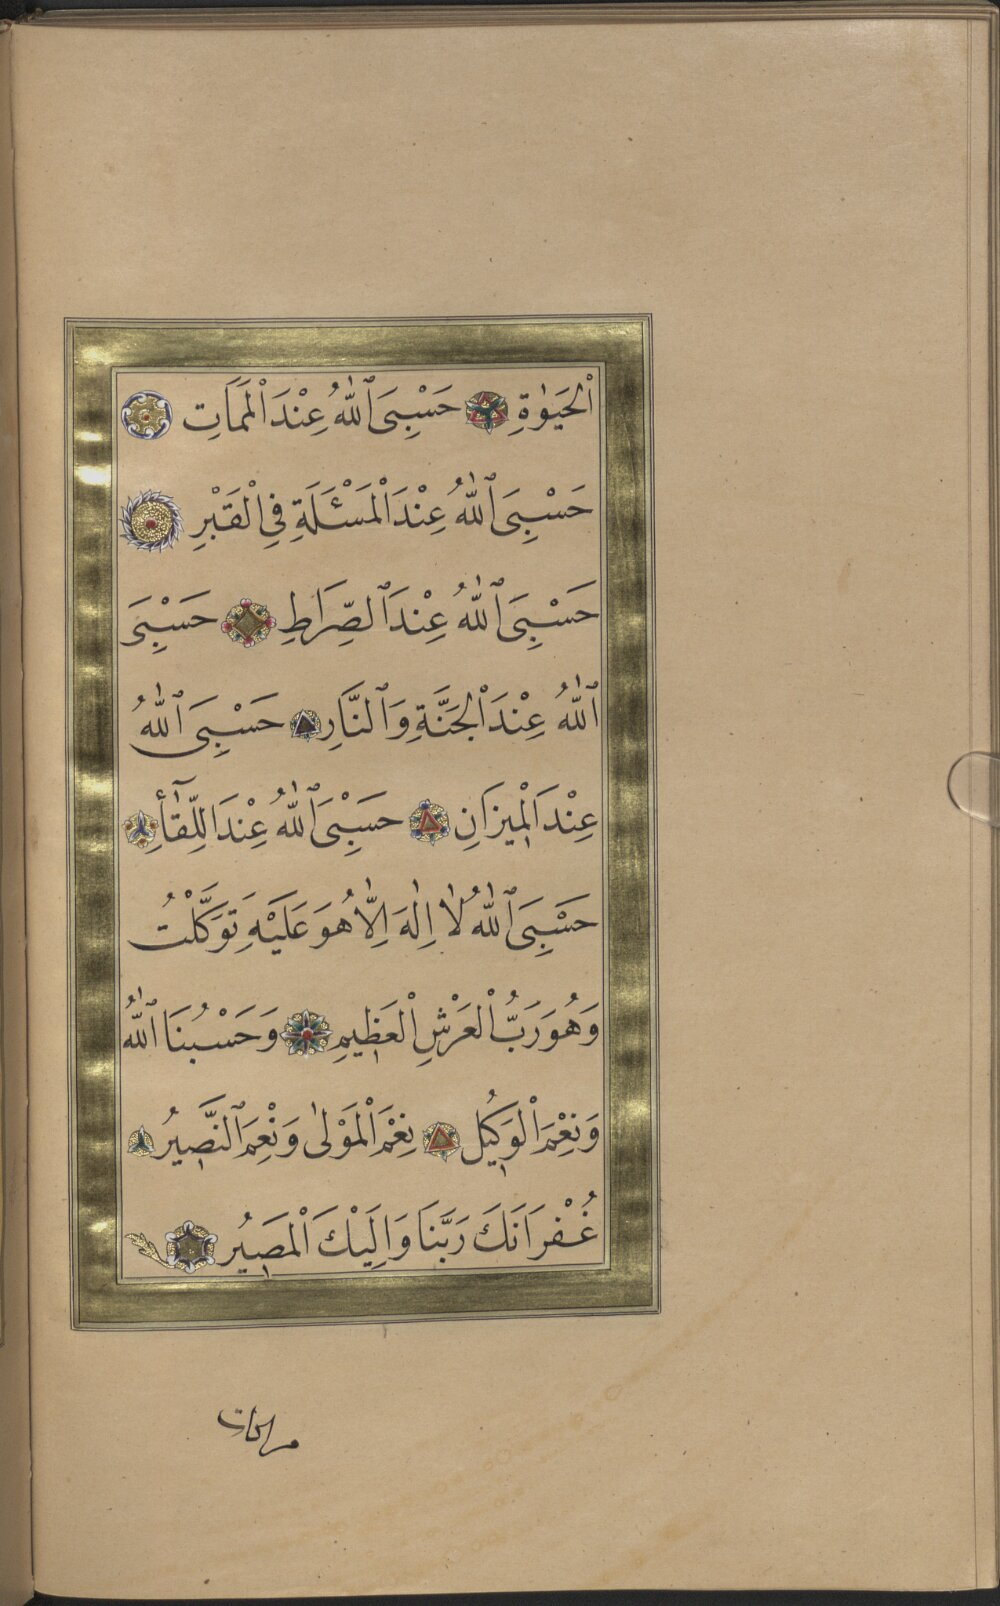 اْلحَيٰوةِ حَسْبِىَ ٱللّٰهُ عِنْدَ اْلمَمَاتِ
حَسْبِىَ ٱللّٰهُ عِنْدَ اْلمَسْئَلَةِ فِى اْلقَبْرِ
حَسْبِىَ ٱللّٰهُ عِنْدَ ٱلصِّرَاطِ حَسْبِىَ
ٱللّٰهُ عِنْدَ اْلجَنَّةِ وَٱلنَّارِ حَسْبِىَ ٱللّٰهُ
عِنْدَ اْلمِيزَانِ حَسْبِىَ ٱللّٰهُ عِنْدَ اللِّقَآءِ
حَسْبِىَ ٱللّٰهُ لَا اِلٰهَ اِلَّا هُوَ عَلَيْهِ تَوَكَّلْتُ
وَهُوَ رَبُّ اْلعَرْشِ اْلعَظِيمِ وَحَسْبُنَا ٱللّٰهُ
وَنِعْمَ اْلوَكِيلُ نِعْمَ اْلمَوْلٰى وَنِعْمَ ٱلنَّصِيرُ
غُفْرَانَكَ رَبَّنَا وَاِلَيْكَ اْلمَصِيرُ